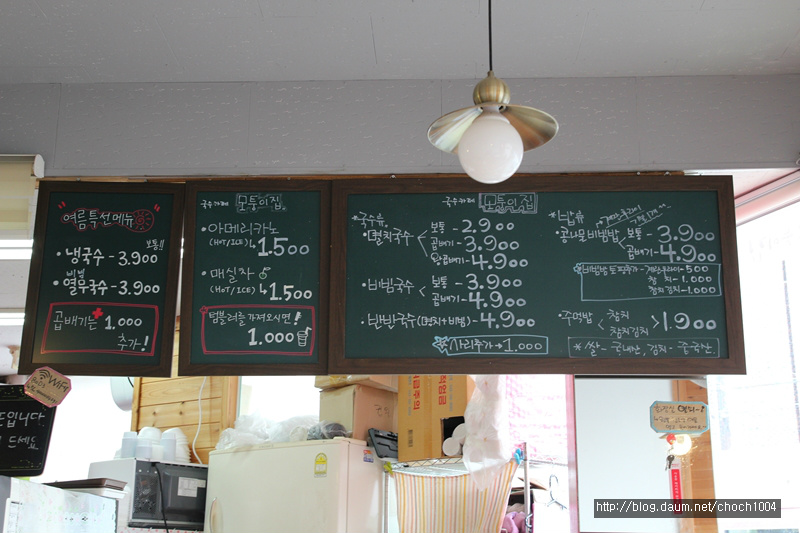 여름특선메뉴
보통!!
·냉국수 - 3.900
비빔
·열무국수 - 3.900
곱배기는+1.000
추가!
국수카페 모퉁이집
·아메리카노
(HOT/ICE) 1.500
·매실차
(HOT/ICE) 1.500
텀블러를 가져오시면!
1.000
국수카페 모퉁이집
*국수류
·멸치국수 보통 - 2.900
곱배기 - 3.900
왕곱배기 - 4.900
·비빔국수 보통 - 3.900
곱배기 - 4.900
·반반국수(멸치+비빔) - 4.900
사리추가→1.000
*밥류
·콩나물비빔밥 보통 - 3.900
곱배기 - 4.900
비빔밥 토핑추가 - 계란후라이 - 500
참치 - 1.000
참치김치 - 1.000
·주먹밥 참치
참치김치 1.900
*쌀 - 국내산, 김치 - 중국산.
WiFi
http://blog.daum.net/choch1004